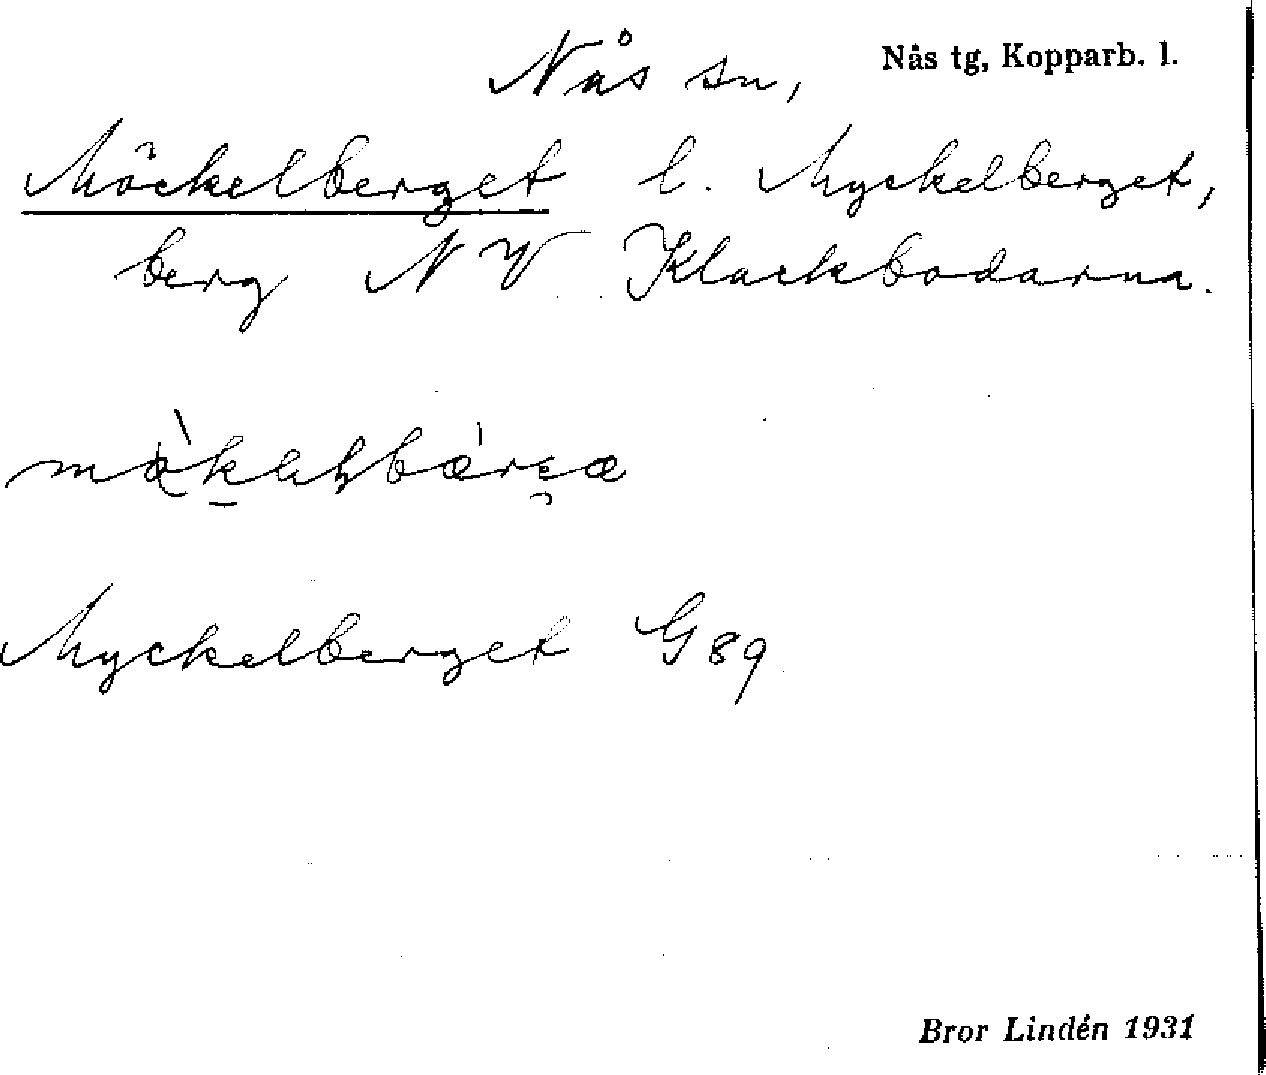 Nås sn,
Nås tg, Kopparb. l.
Möckelberget l. Myckelberget,
berg NV Klackbodarna.
Myckelberget G 89
Bror Lindén 1931